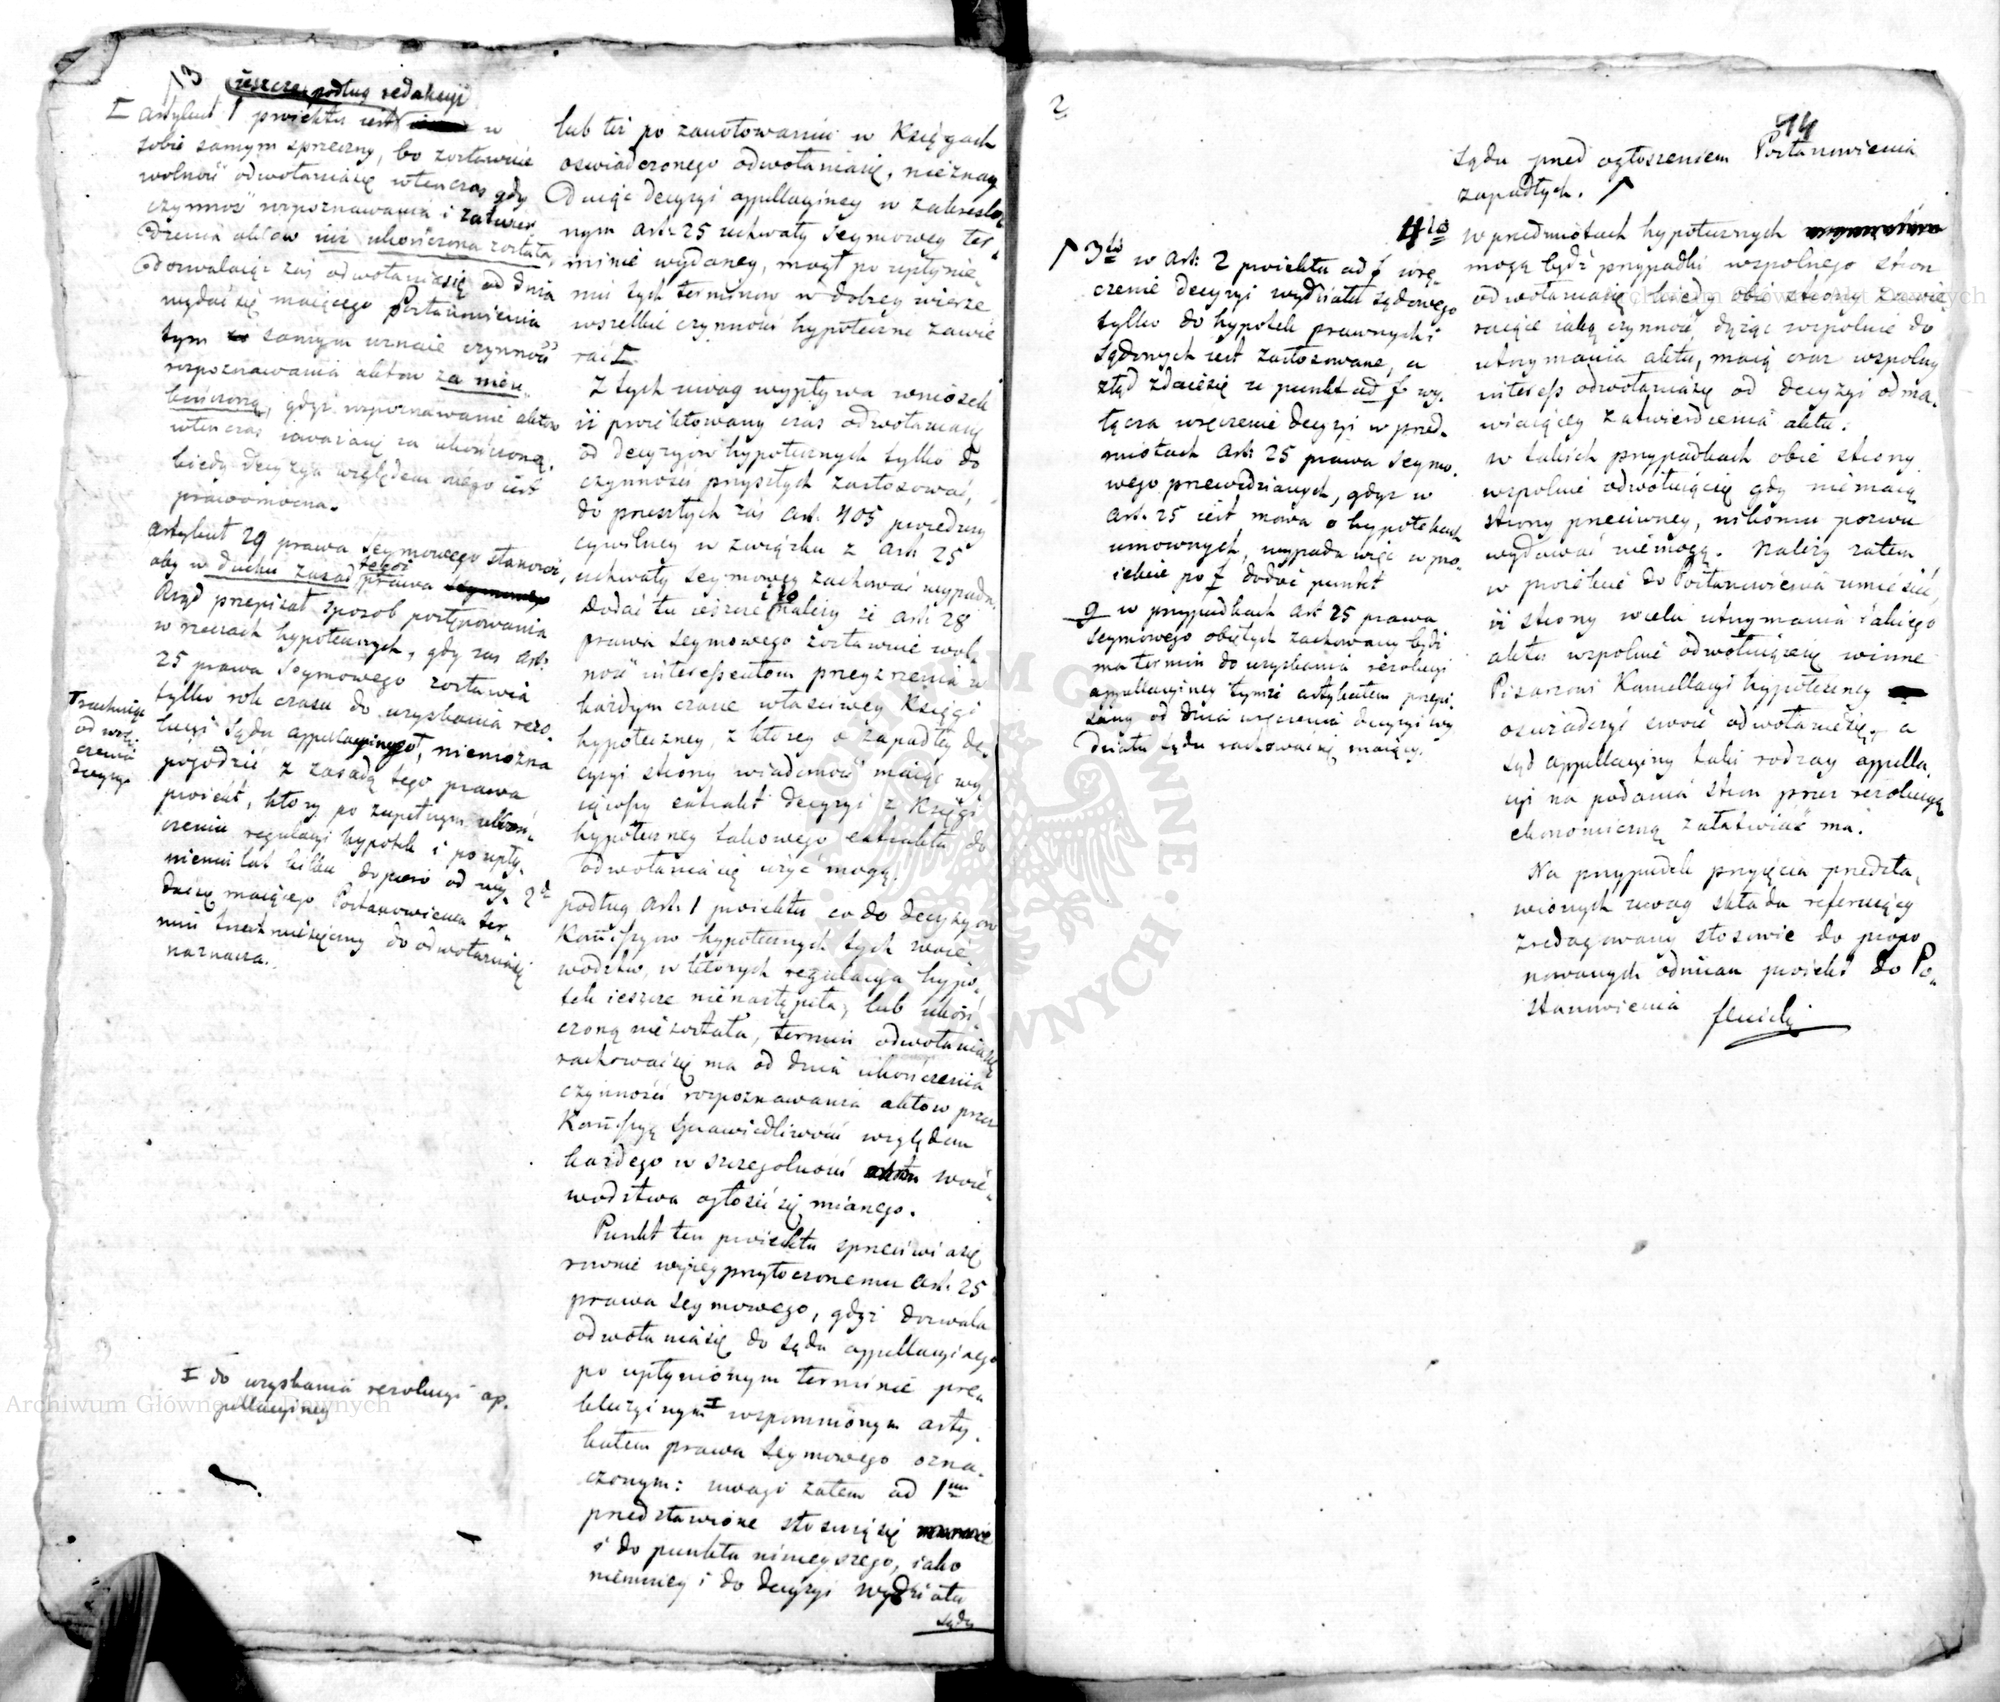 13
ieszcze podług redakcyi
I artykuł 1 proiektu iest w
sobie samym sprzeczny, bo zostawuie
wolność odwołaniasię wtenczas gdy
czynność rozpoznawania i zatwier„
dzenia aktów iuż ukończoną została,
Dozwalaiąc zaś odwołaniasię od dnia
wydać się maiącego Postanowienia
tym samym uznaie czynność
rozpoznawania aktów za nieu„
kończoną, gdyż rozpoznawanie aktów
wtenczas uważane za ukończoną,
kiedy decyzya względem niego iest
prawomocna.
artykuł 29 prawa Seymowego stanowi,
aby w duchu zasad tegoż prawa
Rząd przepisał sposób postępowania
w rzeczach hypotecznych, gdy zas art:
25 prawa Seymowego zostawia
tylko rok czasu do uzyskania rezo„
lucyi Sądu appellacyinego, niemożna
pogodzić z zasadą tego prawa
proiekt, który po zupełnym ukoń„
czeniu regulacyi hypotek i po upły„
nieniu lat kilku dopiero od wy„
dać się maiącego Postanowienia ter„
min trzechmiesięczny do odwołaniasię
naznacza.
rachuiąc
od wrę
czenia
decyzyi
I do uzyskania rezolucyi ap„
pellacyiney
lub też po zanotowaniu w Księgach
oswiadczonego odwołaniasię, nieznay
Duiąc decyzyi appellacyiney w zakreslo„
nym art: 25 uchwały Seymowey ter„
minie wydaney, mógł po upłynie„
niu tych terminów w dobrey wierze
wszelkie czynności hypoteczne zawie
rać I
Z tych uwag wypływa wniosek
iż proiektowany czas odwołaniasię
od decyzyiów hypotecznych tylko do
czynności przyszłych zastosować,
do przeszłych zaś art. 405 procedury
cywilney w związku z art 25
uchwały Seymowey zachować wypada.
Dodać tu ieszcze i to należy że art: 28
prawa Seymowego zostawuie wol„
ność interessentom przeyrzenia w
każdym czasie właściwey Księgi
hypoteczney, z którey o zapadłey de„
cyzyi strony wiadomość maiąc wy
iąwszy extrakt decyzyi z Księgi
hypoteczney takowego extraktu do
odwołaniasię użyć mogą.
2do podług art: 1 proiektu co do decyzyów
Kommissyów hypotecznych tych woie„
wodztw, w których regulacya hypo„
tek ieszcze nienastąpiła, lub ukoń„
czoną niezostała, termin odwołaniasię
rachowaćsię ma od dnia ukończenia
czynności rozpoznawania aktów przez
Kommissyą Sprawiedliwości względem
każdego w szczególności woie„
wodztwa ogłosić się mianego.
Punkt ten proiektu sprzeciwiasię
rownie wyżey przytoczonemu art: 25
prawa Seymowego, gdyż dozwala
odwołaniasię do sądu appellacyinego
po upłynionym terminie pre„
kluzyinym I wspomnionym arty„
kułem prawa Seymowego ozna„
czonym: uwagi zatem ad 1mum
przedstawione stosuiąsię
i do punktu ninieyszego, iako
niemniey i do decyzyi Wydziału
Sądu
2
14
Sądu przed ogłoszeniem Postanowienia
zapadłych.
3tio w art: 2 proiektu ad f wrę
czenie decyzyi wydziału sądowego
tylko do hypotek prawnych i
sądowych iest zastosowane, a
ztąd zdaiesię iż punkt ad f wy„
łącza wręczenie decyzyi w przed„
miotach art: 25 prawa Seymo„
wego przewidzianych, gdyż w
art: 25 iest mowa o hypotekach
umownych, wypada więc w pro„
iekcie po f dodać punkt
g w przypadkach art 25 prawa
Seymowego obiętych zachowany być
ma termin do uzyskania rezolucyi
appellacyiney tymże artykułem przepi„
sany od dnia wręczenia decyzyi wy
działu sądu rachowaćsię maiący.
4to w przedmiotach hypotecznych
mogą być przypadki wspolnego stron
odwołaniasię kiedy obie strony zawie„
raiące iaką czynność dążąc wspolnie do
utrzymania aktu, maią oraz wspolny
interess odwołaniasię od decyzyi odma„
wiaiącey zatwierdzenia aktu.
w takich przypadkach obie strony
wspolnie odwołuiącesię gdy niemaią
strony przeciwney, nikomu pozwu
wydawać niemogą. Należy zatem
w proiekcie do Postanowienia umieścić,
iż strony w celu utrzymania takiego
aktu wspolnie odwołuiącesię winne
Pisarzowi Kancellaryi hypoteczney
oswiadczyć swoie odwołaniesię, a
Sąd appellacyiny taki rodzay appella„
cyi na podania stron przez rezolucyą
ekonomiczną załatwiać ma.
Na przypadek przyięcia przedsta„
wionych uwag składa referuiący
zredagowany stosownie do propo
nowanych odmian proiekt do Po„
stanowienia